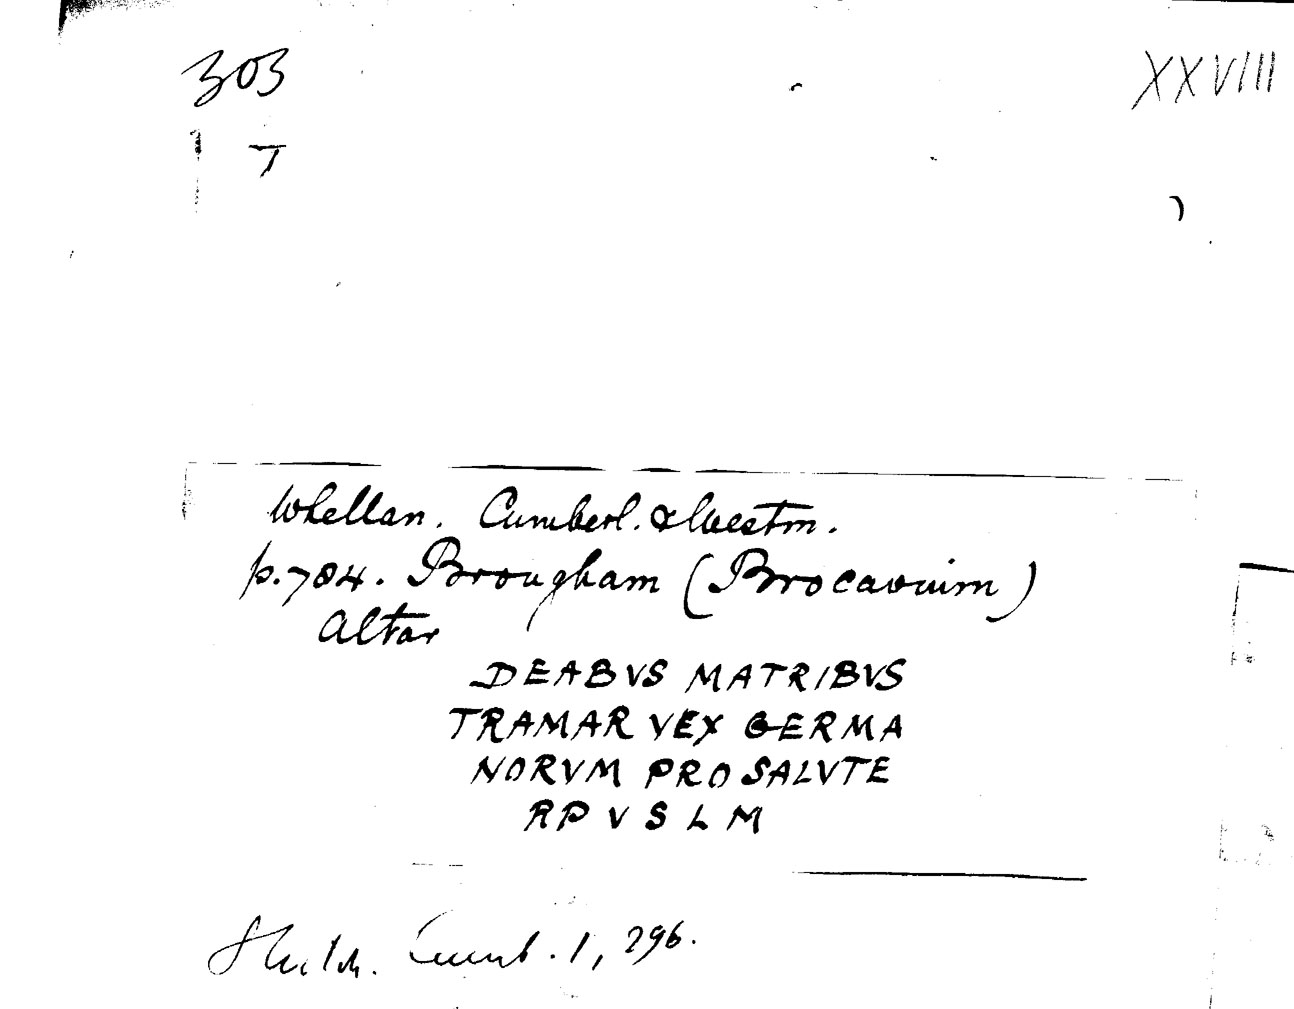 303
XXVIII
Whellan. Cumberl. & Westm.
p. 784. Brougham (Brocavuim)
Altar
DEABVS MATRIBVS
TRAMAR VEX GERMA
NORVM PRO SALVTE
RP V S L M
Cumb. 1, 296.